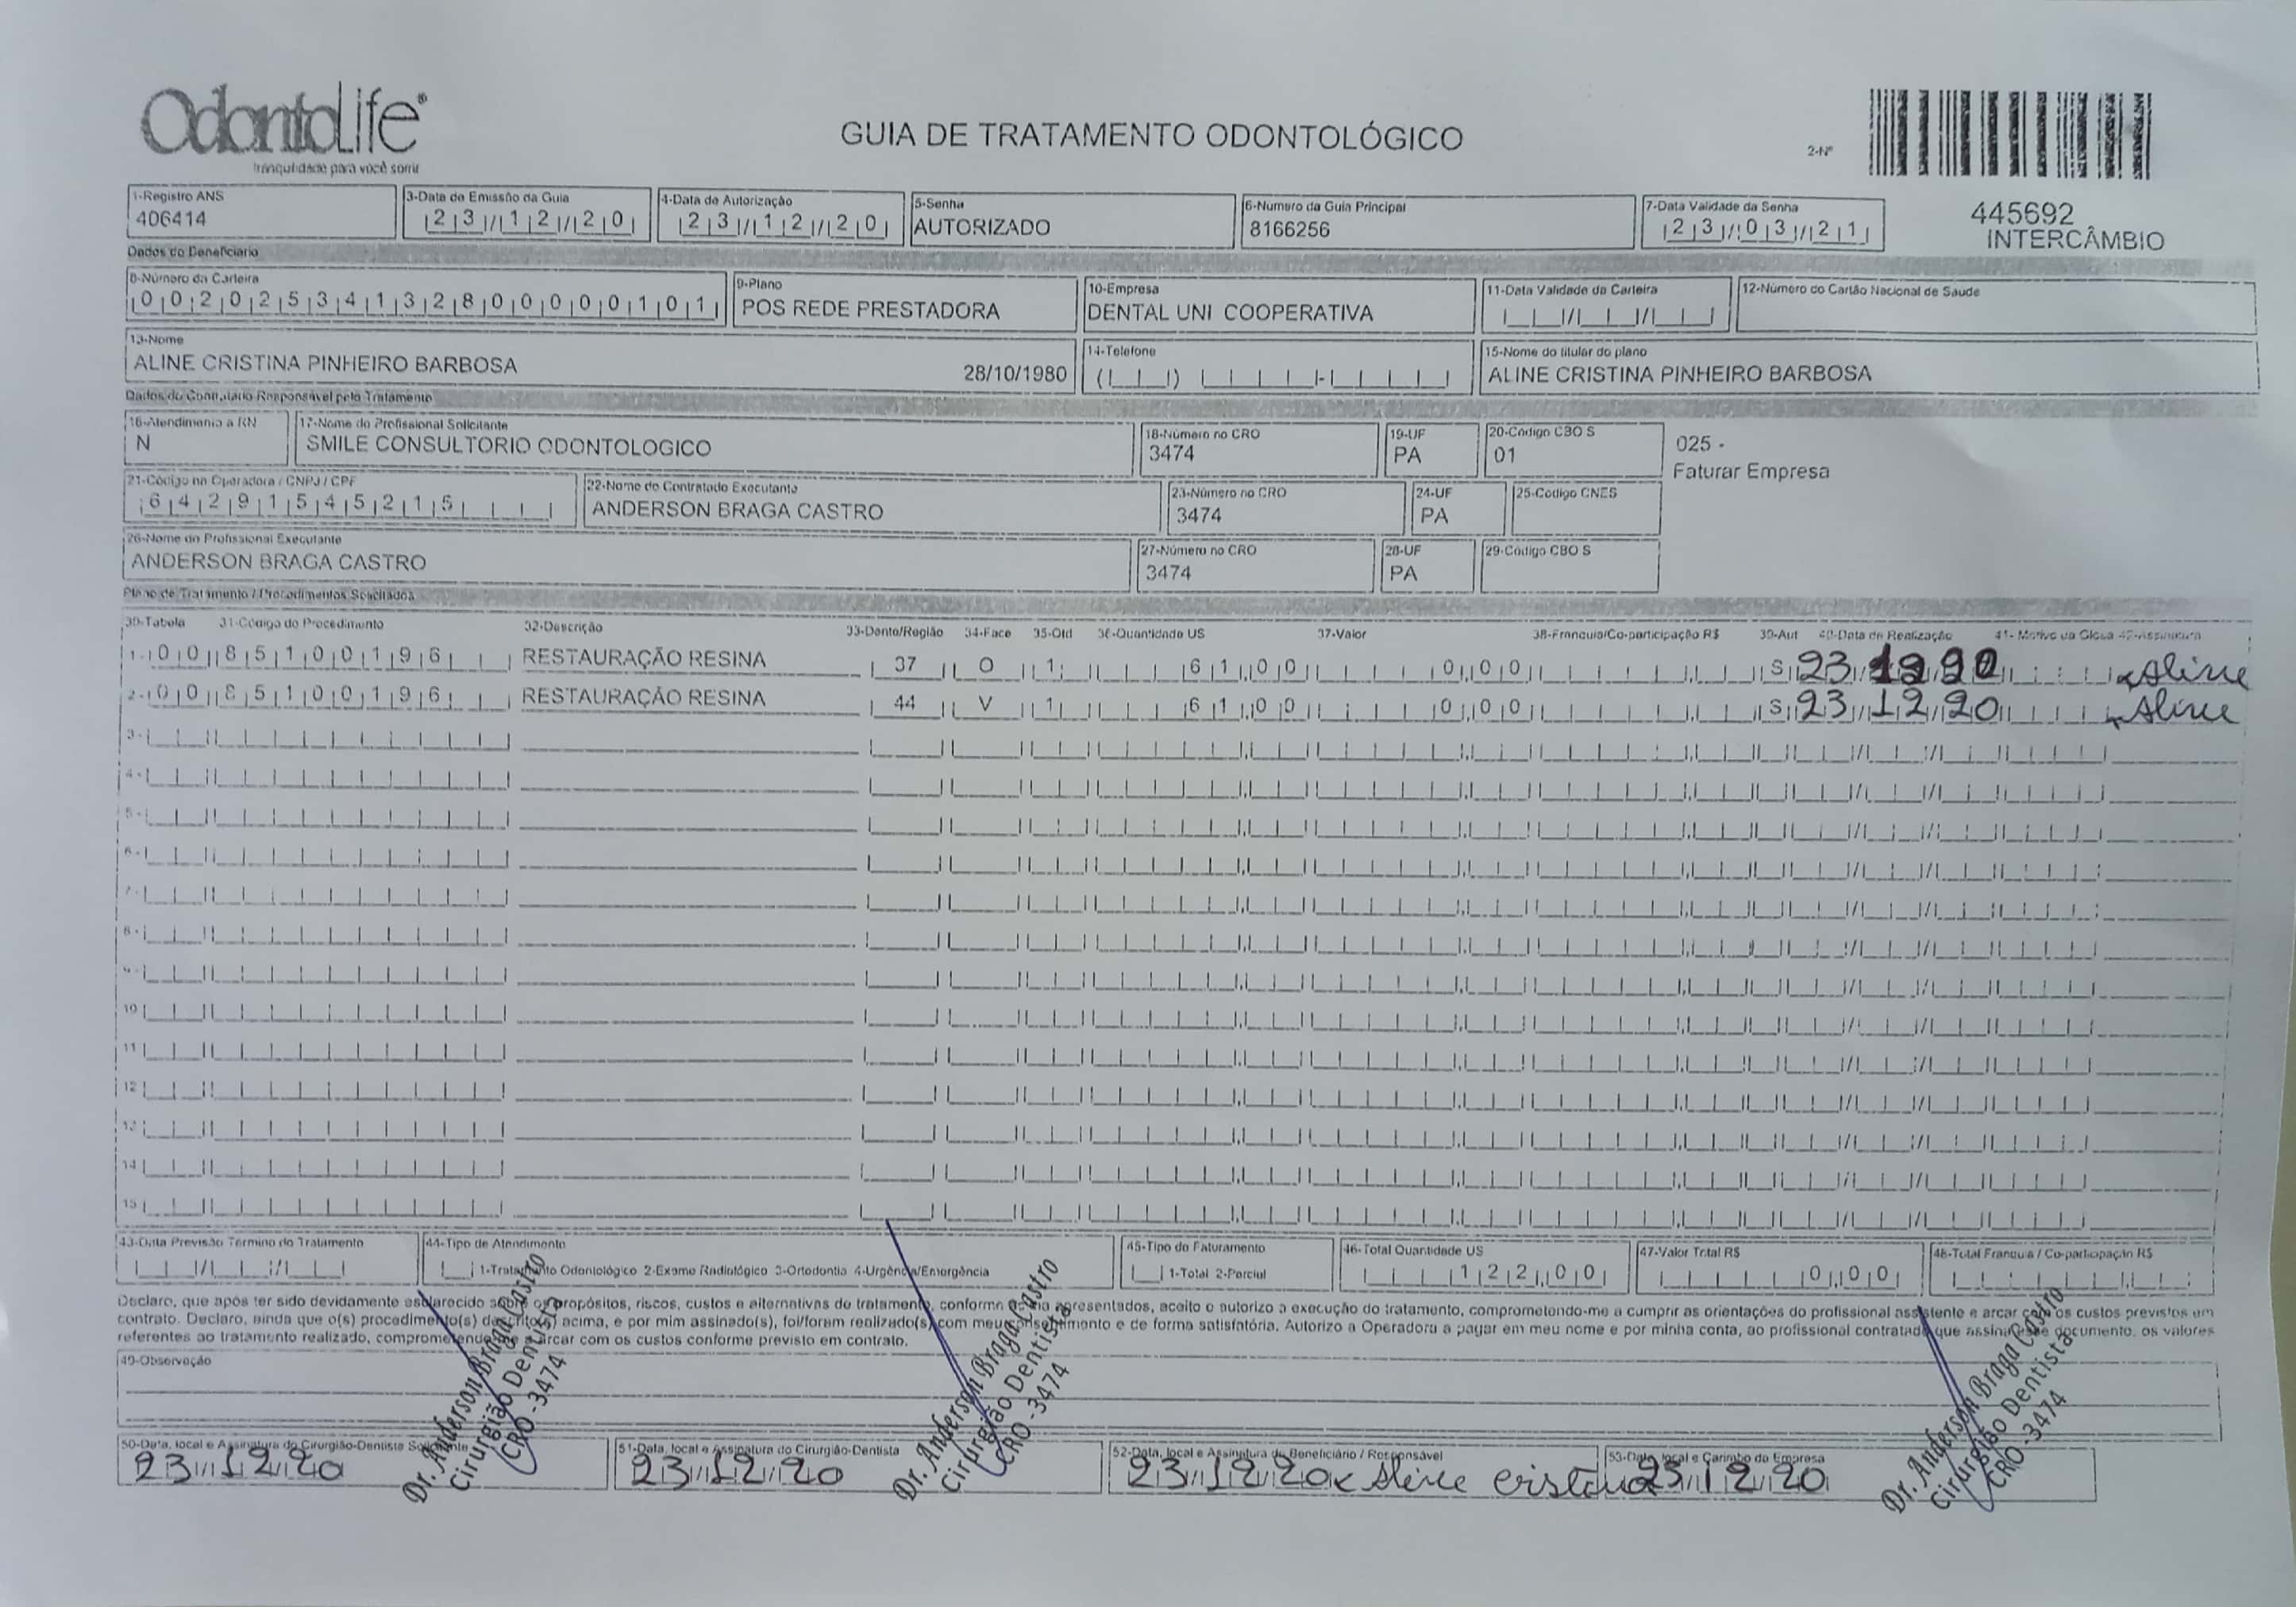 OdontoLife®
tranquilidade para você sorrir
GUIA DE TRATAMENTO ODONTOLÓGICO
2-Nº
445692
INTERCÂMBIO
1-Registro ANS
406414
3-Data de Emissão da Guia
23/12/20
4-Data de Autorização
23/12/20
5-Senha
AUTORIZADO
6-Numero da Guia Principal
8166256
7-Data Validade da Senha
23/03/21
Dados do Beneficiário
8-Número da Carteira
00202534132800000101
9-Plano
POS REDE PRESTADORA
10-Empresa
DENTAL UNI COOPERATIVA
11-Data Validade da Carteira
12-Número do Cartão Nacional de Saude
13-Nome
ALINE CRISTINA PINHEIRO BARBOSA 28/10/1980
14-Telefone
15-Nome do titular do plano
ALINE CRISTINA PINHEIRO BARBOSA
Dados do Contratado Responsável pelo Tratamento
16-Atendimento a RN
N
17-Nome do Profissional Solicitante
SMILE CONSULTORIO ODONTOLOGICO
18-Número no CRO
3474
19-UF
PA
20-Código CBO S
01
025 -
Faturar Empresa
21-Código na Operadora / CNPJ / CPF
64291545215
22-Nome do Contratado Executante
ANDERSON BRAGA CASTRO
23-Número no CRO
3474
24-UF
PA
25-Código CNES
26-Nome do Profissional Executante
ANDERSON BRAGA CASTRO
27-Número no CRO
3474
28-UF
PA
29-Código CBO S
Plano de Tratamento / Procedimentos Solicitados
30-Tabela 31-Código do Procedimento 32-Descrição 33-Dente/Região 34-Face 35-Qtd 36-Quantidade US 37-Valor 38-Franquia/Co-participação R$ 39-Aut 40-Data de Realização 41- Motivo da Glosa 42-Assinatura
1- 00 85100196 RESTAURAÇÃO RESINA 37 O 1 61,00 0,00 S 23 12 20 Aline
2- 00 85100196 RESTAURAÇÃO RESINA 44 V 1 61,00 0,00 S 23 12 20 Aline
3-
4-
5-
6-
7-
8-
9-
10
11
12
13
14
15
43-Data Previsão Término do Tratamento
44-Tipo de Atendimento
1-Tratamento Odontológico 2-Exame Radiológico 3-Ortodontia 4-Urgência/Emergência
45-Tipo de Faturamento
1-Total 2-Parcial
46-Total Quantidade US
122,00
47-Valor Total R$
0,00
48-Total Franquia / Co-participação R$
Declaro, que após ter sido devidamente esclarecido sobre os propósitos, riscos, custos e alternativas do tratamento, conforme acima apresentados, aceito e autorizo a execução do tratamento, comprometendo-me a cumprir as orientações do profissional assistente e arcar com os custos previstos em
contrato. Declaro, ainda que o(s) procedimento(s) descrito(s) acima, e por mim assinado(s), foi/foram realizado(s) com meu consentimento e de forma satisfatória. Autorizo a Operadora a pagar em meu nome e por minha conta, ao profissional contratado que assina esse documento, os valores
referentes ao tratamento realizado, comprometendo-me a arcar com os custos conforme previsto em contrato.
49-Observação
50-Data, local e Assinatura do Cirurgião-Dentista Solicitante
23 12 20
Dr. Anderson Braga Castro
Cirurgião Dentista
CRO-3474
51-Data, local e Assinatura do Cirurgião-Dentista
23 12 20
Dr. Anderson Braga Castro
Cirurgião Dentista
CRO-3474
52-Data, local e Assinatura do Beneficiário / Responsável
23 12 20 Aline Cristina
53-Data, local e Carimbo da Empresa
23 12 20
Dr. Anderson Braga Castro
Cirurgião Dentista
CRO-3474